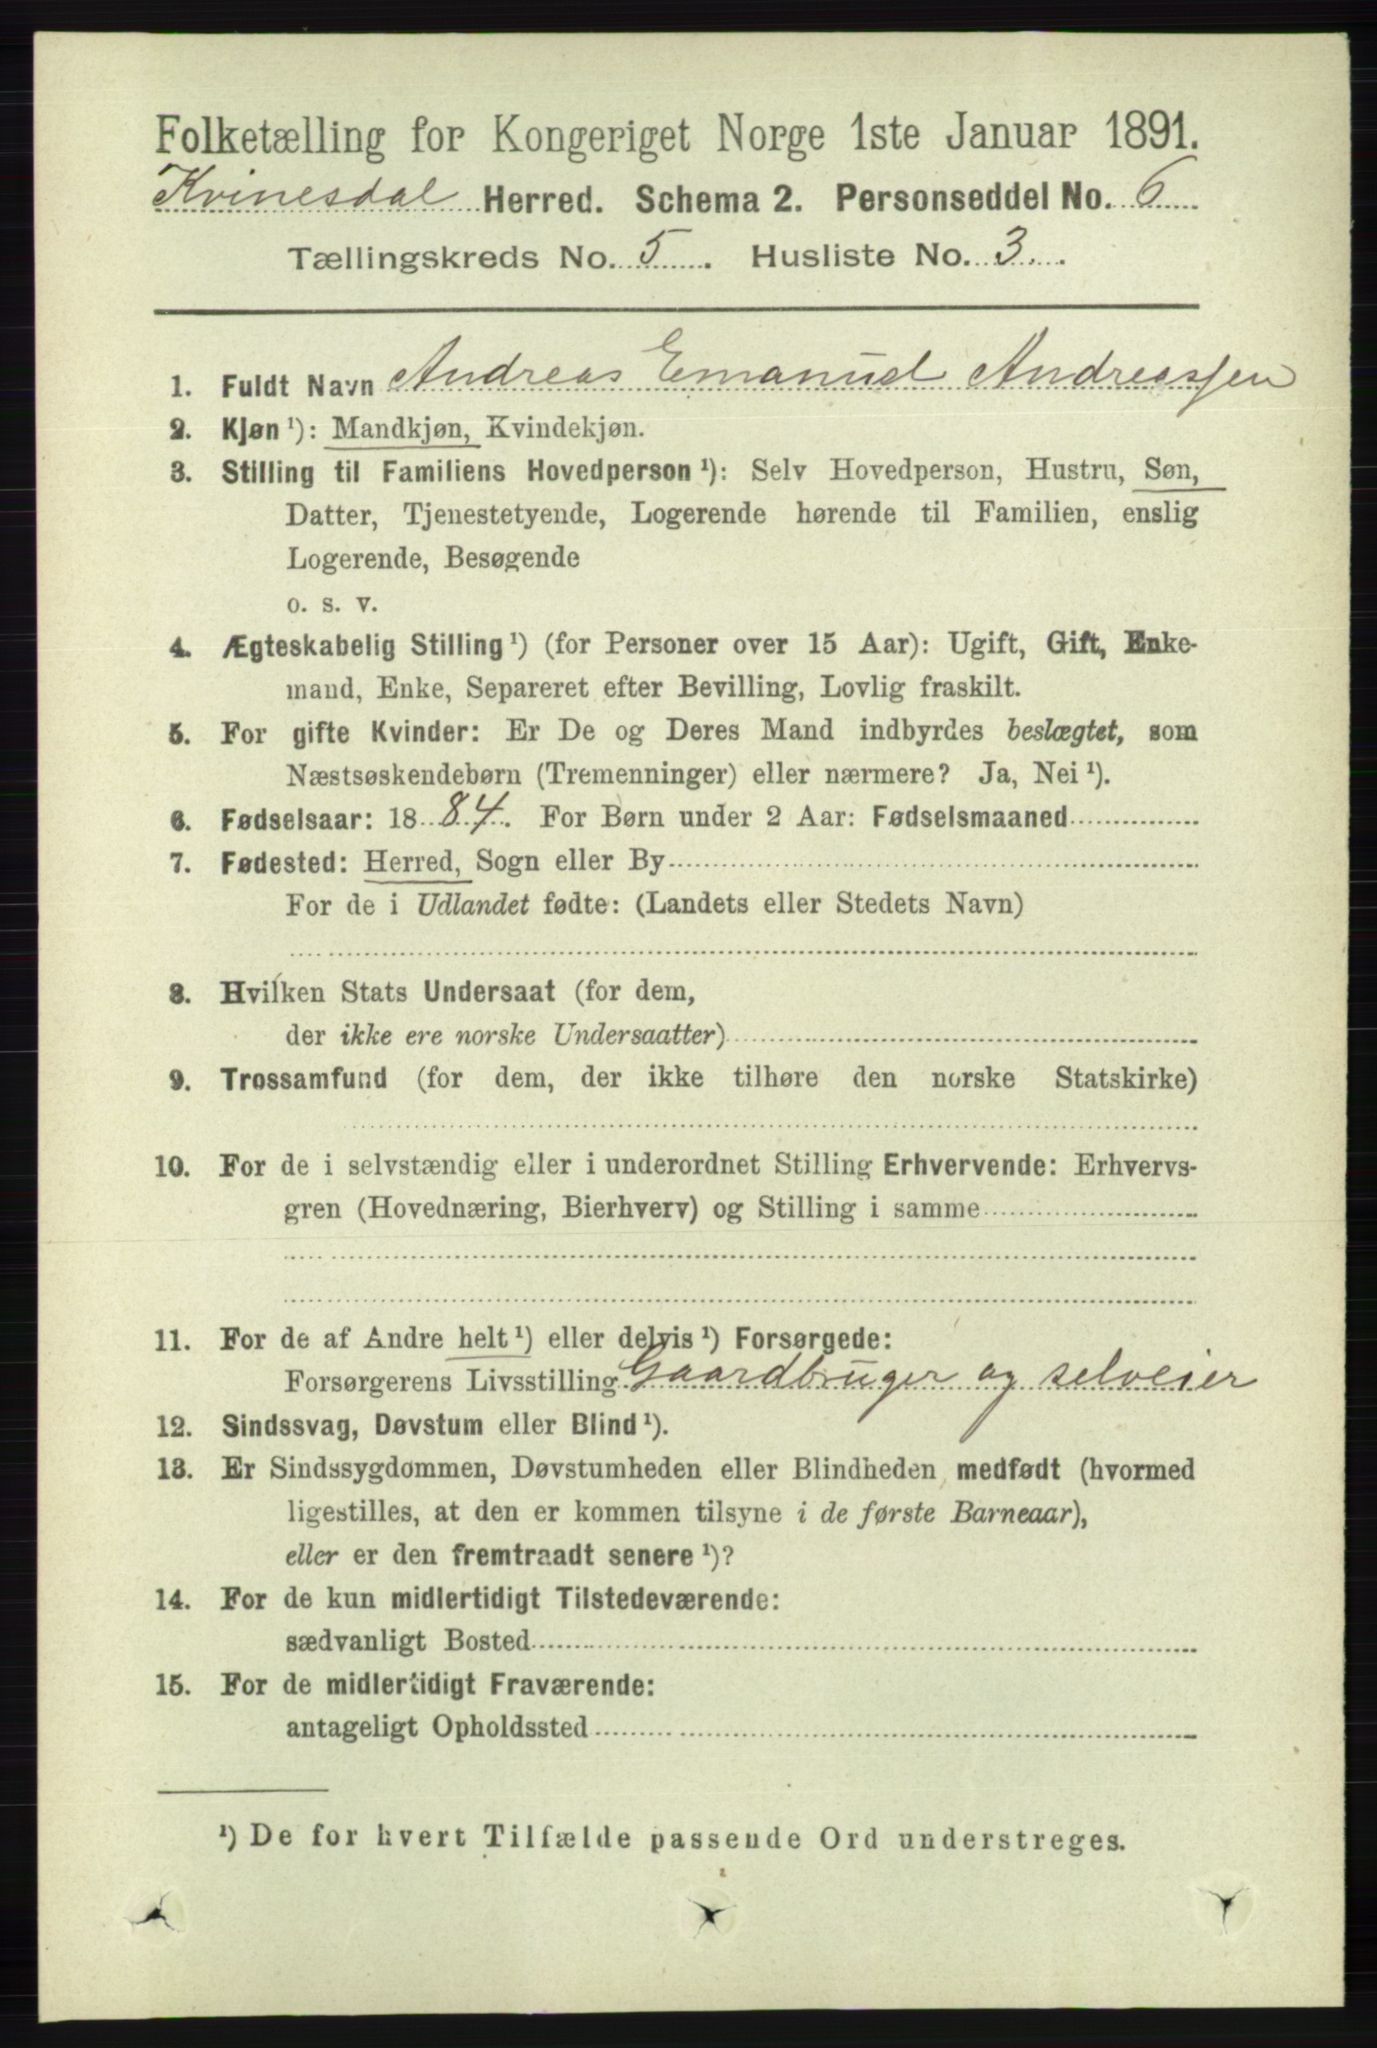 Folketælling for Kongeriget Norge 1ste Januar 1891.
Kvinesdal Herred. Schema 2. Personseddel No. 6
Tællingskreds No. 5. Husliste No. 3.
1. Fuldt Navn Andreas Emanuel Andreassen
2. Kjøn ¹): Mandkjøn, Kvindekjøn.
3. Stilling til Familiens Hovedperson ¹): Selv Hovedperson, Hustru, Søn,
Datter, Tjenestetyende, Logerende hørende til Familien, enslig
Logerende, Besøgende
o. s. v.
4. Ægteskabelig Stilling ¹) (for Personer over 15 Aar): Ugift, Gift, Enke-
mand, Enke, Separeret efter Bevilling, Lovlig fraskilt.
5. For gifte Kvinder: Er De og Deres Mand indbyrdes beslægtet, som
Næstsøskendebørn (Tremenninger) eller nærmere? Ja, Nei ¹).
6. Fødselsaar: 1884. For Børn under 2 Aar: Fødselsmaaned
7. Fødested: Herred, Sogn eller By
For de i Udlandet fødte: (Landets eller Stedets Navn)
8. Hvilken Stats Undersaat (for dem,
der ikke ere norske Undersaatter)
9. Trossamfund (for dem, der ikke tilhøre den norske Statskirke)
10. For de i selvstændig eller i underordnet Stilling Erhvervende: Erhvervs-
gren (Hovednæring, Bierhverv) og Stilling i samme
11. For de af Andre helt ¹) eller delvis ¹) Forsørgede:
Forsørgerens Livsstilling Gaardbruger og selveier
12. Sindssvag, Døvstum eller Blind ¹).
13. Er Sindssygdommen, Døvstumheden eller Blindheden medfødt (hvormed
ligestilles, at den er kommen tilsyne i de første Barneaar),
eller er den fremtraadt senere ¹)?
14. For de kun midlertidigt Tilstedeværende:
sædvanligt Bosted
15. For de midlertidigt Fraværende:
antageligt Opholdssted
¹) De for hvert Tilfælde passende Ord understreges.